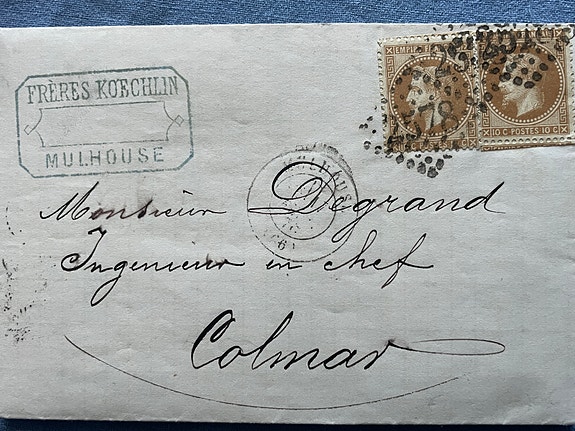 FRÈRES KŒCHLIN
MULHOUSE
EMPIRE FR
10 C POSTES 10 C
Monsieur Degrand
Ingenieur en chef
Colmar